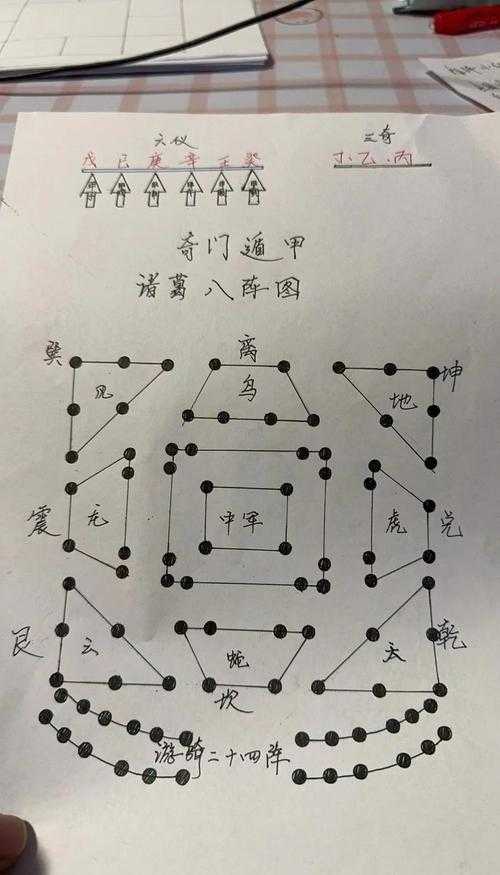 六仪 三奇
戊 己 庚 辛 壬 癸 丁、乙、丙
奇门遁甲
诸葛八阵图
巽 离 坤
风 鸟 地
震 龙 中军 虎 兑
艮 云 蛇 天 乾
坎
游骑二十四阵